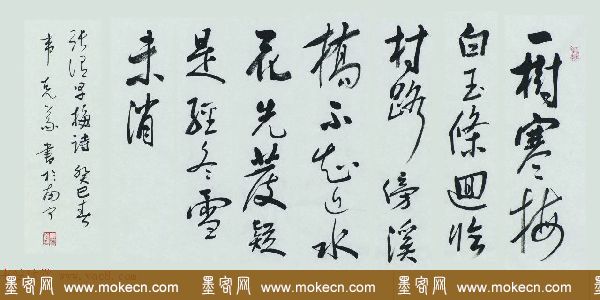 一樹寒梅
白玉條迴临
村路傍溪
橋不知近水
花先發疑
是經冬雪
未消
张谓早梅诗癸巳春
韦克义書於南宁
墨客网 www.mokecn.com 墨客网 www.mokecn.com 墨客网 www.mokecn.com